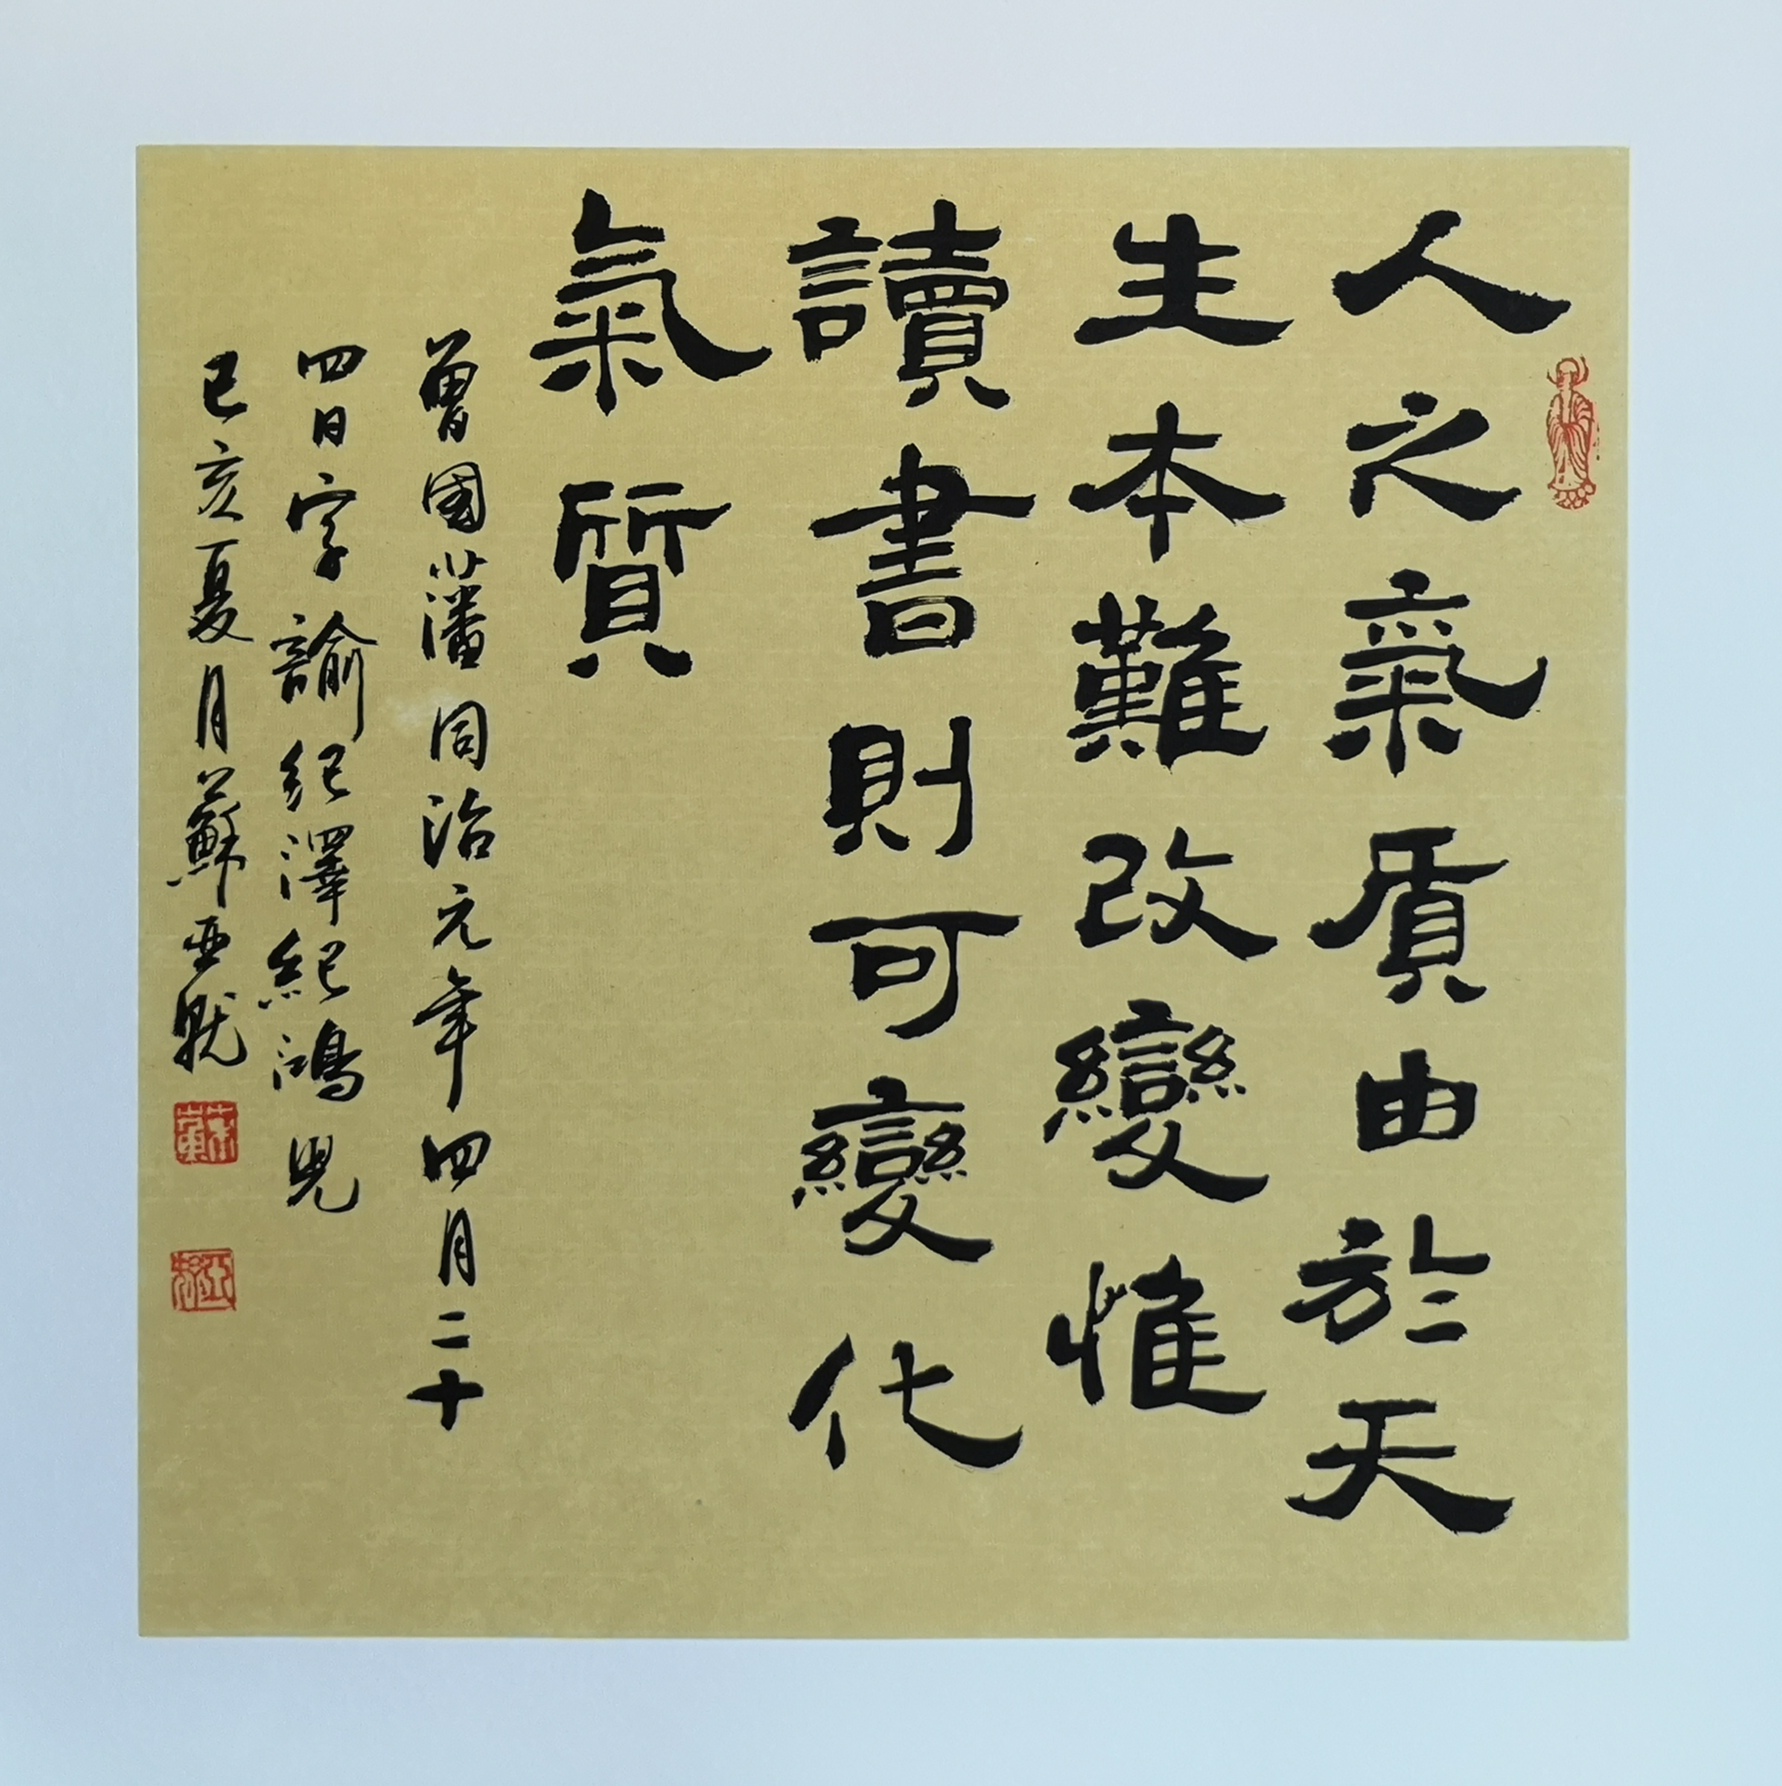 人之氣質由於天
生本難改變惟
讀書則可變化
氣質
曾國藩同治元年四月二十
四日字諭紀澤紀鴻兒
己亥夏月蘇亞默